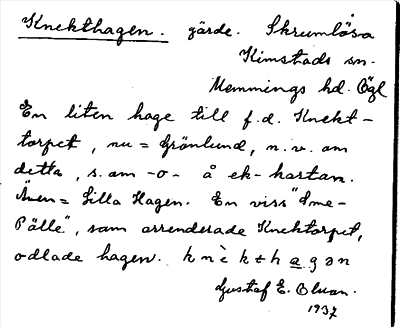 Knekthagen. gärde. Skrumlösa
Kimstads sn.
Memmings hd. Ögl
En liten hage till f.d. Knekt-
torpet, nu = Grönlund, n.v. om
detta, s. om -o- å ek-kartan.
Även = Lilla Hagen. En viss "Sme-
Pälle", som arrenderade Knektorpet,
odlade hagen. knèkthagən
Gustaf E. Olson.
1937